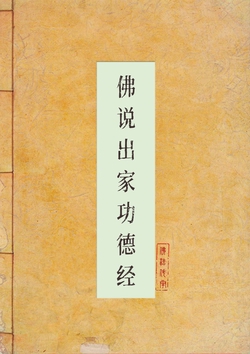 佛说出家功德经